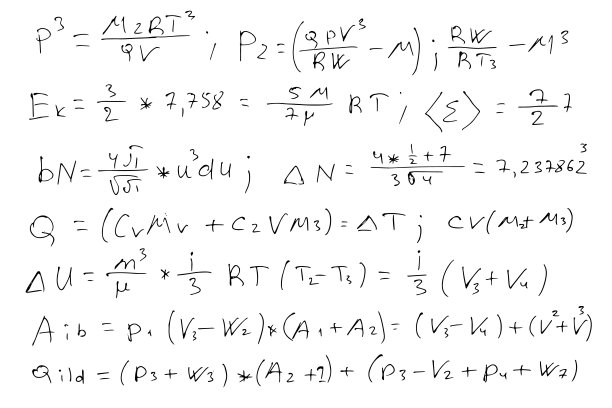 P³ = M₂RT³/QV ; P₂ = (QPV³/RW − M) ; RW/RT₃ − M1³
Eₖ = 3/2 * 7,758 = 5M/7μ RT ; ⟨Σ⟩ = 7/2 7
bN = 4Ji/√Ji * u³du ; ΔN = (4*½+7)/(3√4) = 7,237862³
Q = (CᵥMᵥ + C₂VM₃) = ΔT ; CV(M₂+M₃)
ΔU = m³/μ * i/3 RT (T₂−T₃) = i/3 (V₃+V₄)
Aib = P₁ (V₃−W₂)*(A₁+A₂) = (V₃−V₄)+(V²+V³)
Qild = (P₃+W₃)*(A₂+1)+(P₃−V₂+P₄+W₇)